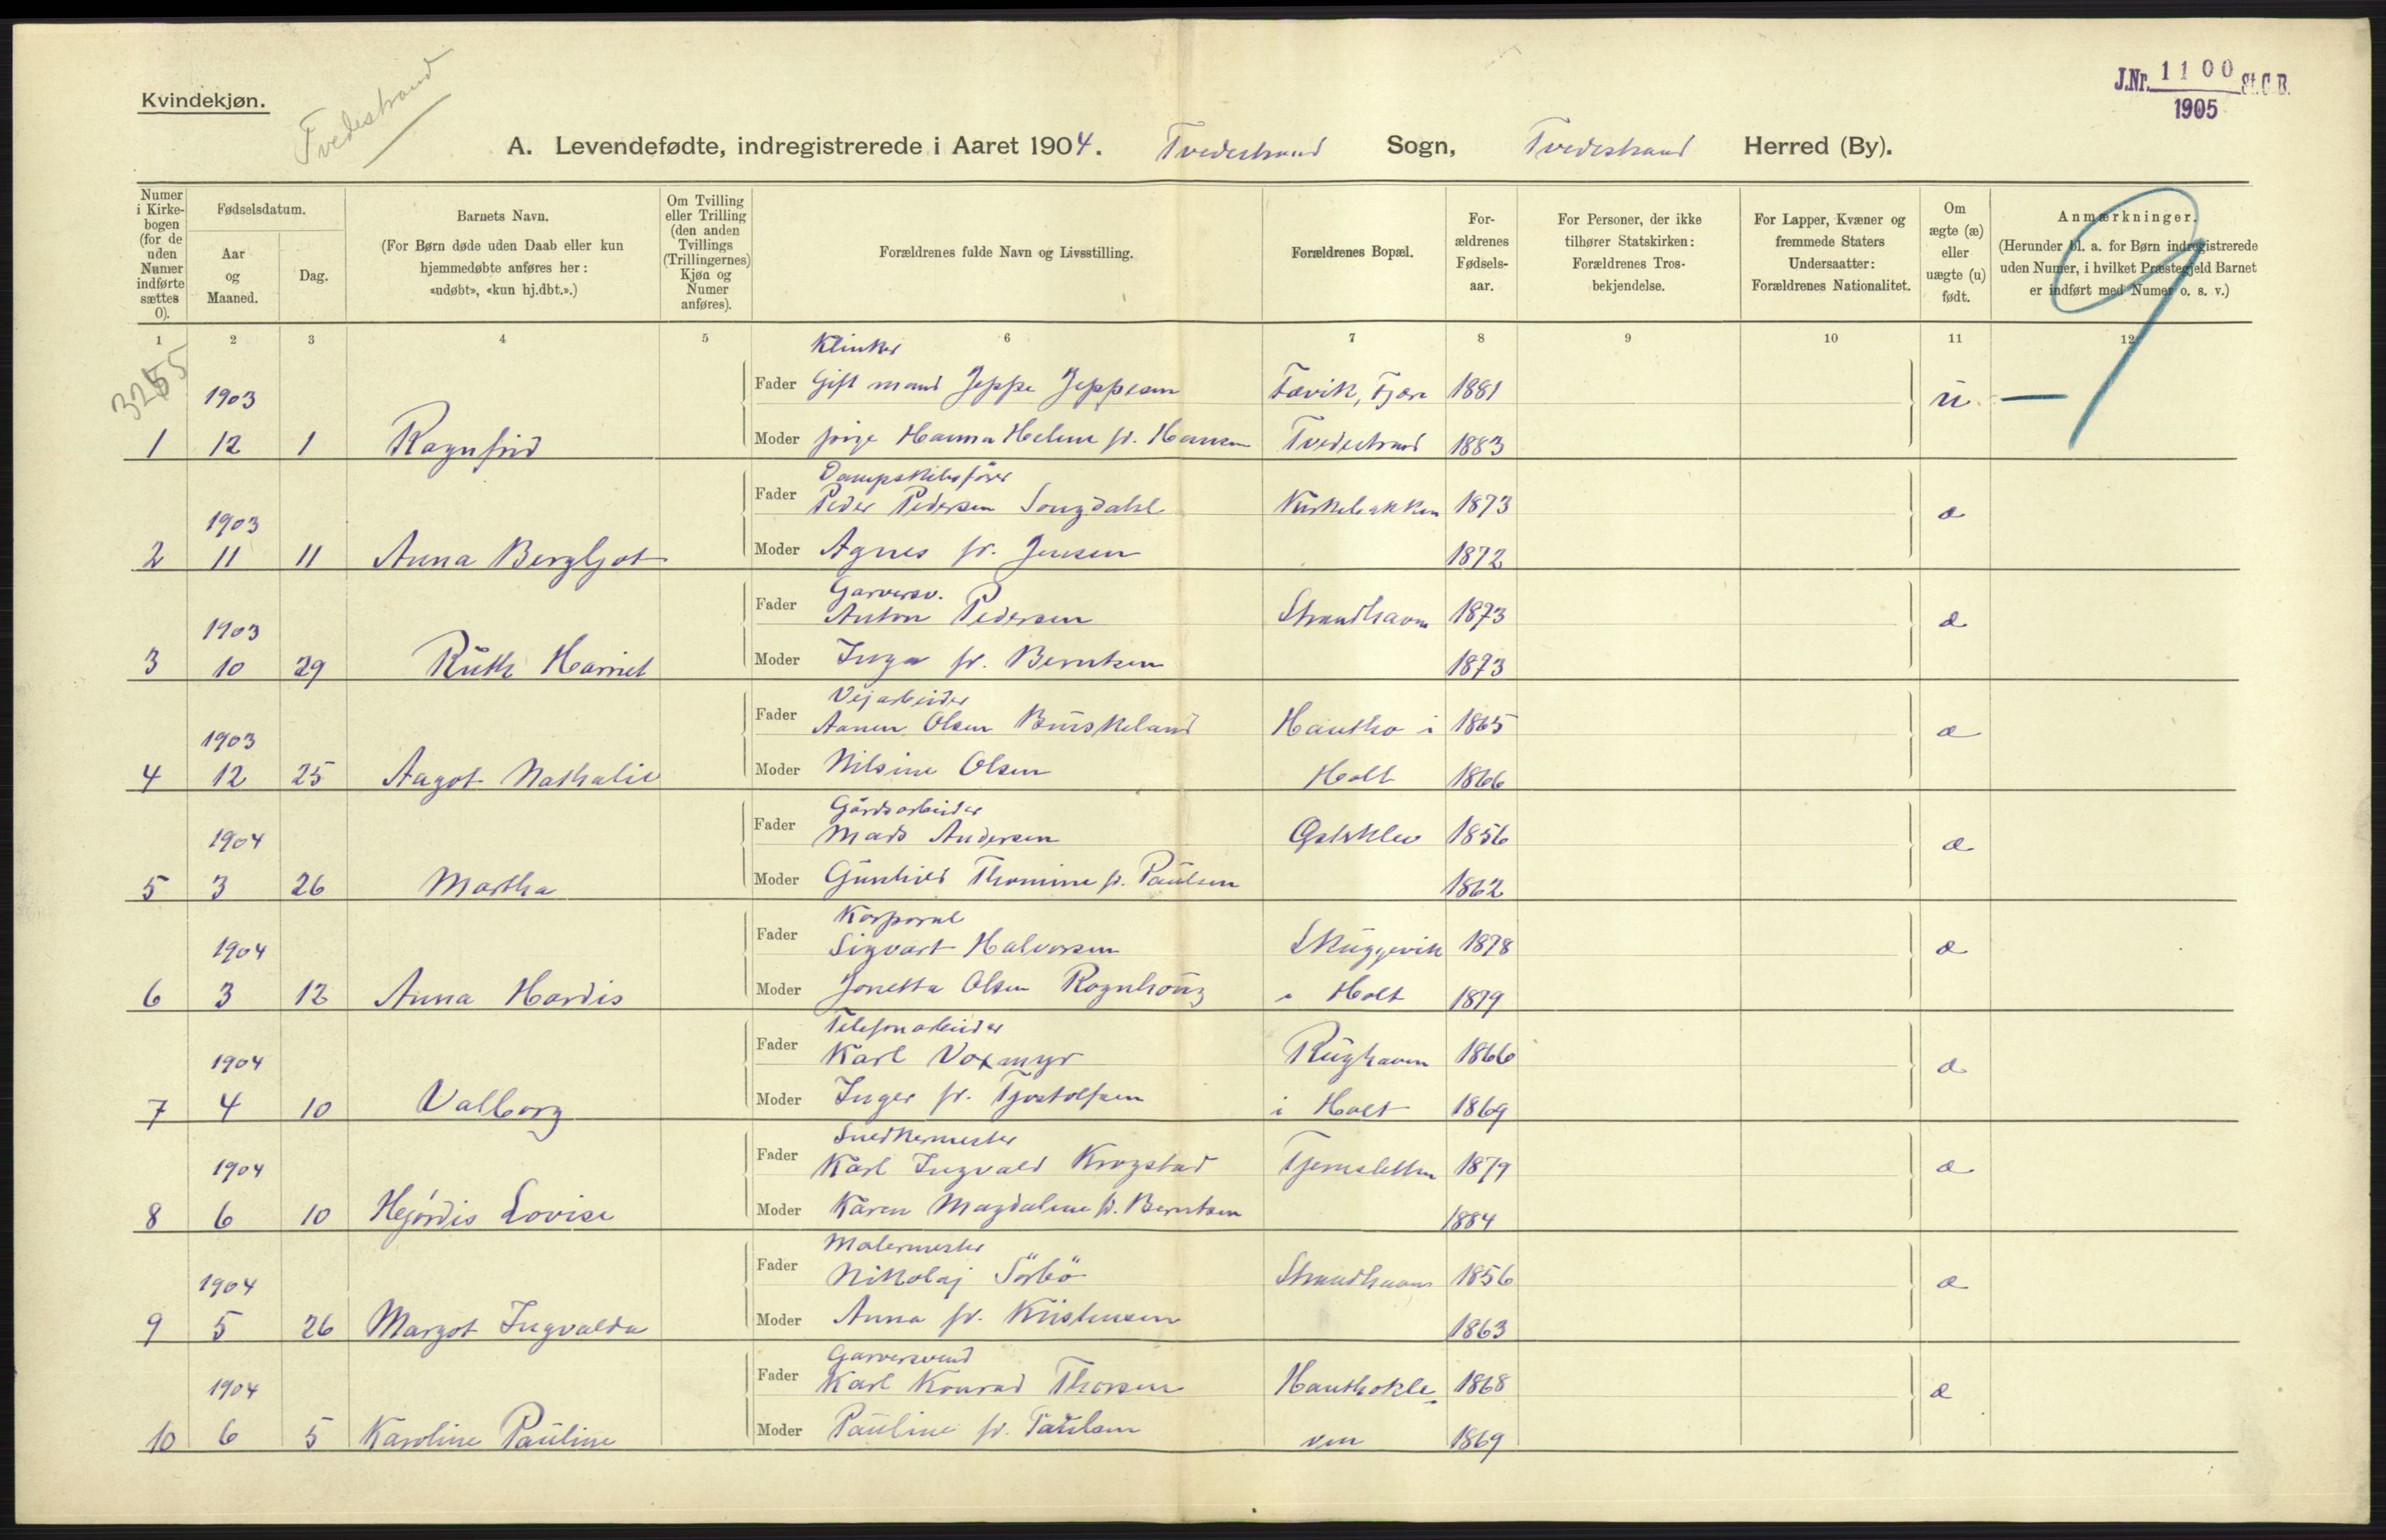 Kvindekjøn.
Tvedestrand
J.Nr. 1100 St.C.B.
1905
A. Levendefødte, indregistrerede i Aaret 1904. Tvedestrand Sogn, Tvedestrand Herred (By).
Numer i Kirkebogen (for de uden Numer indførte sættes 0).
Fødselsdatum.
Aar og Maaned.
Dag.
Barnets Navn.
(For Børn døde uden Daab eller kun hjemmedøbte anføres her: «udøbt», «kun hj.dbt.».)
Om Tvilling eller Trilling (den anden Tvillings (Trillingernes) Kjøn og Numer anføres).
Forældrenes fulde Navn og Livsstilling.
Forældrenes Bopæl.
Forældrenes Fødselsaar.
For Personer, der ikke tilhører Statskirken: Forældrenes Trosbekjendelse.
For Lapper, Kvæner og fremmede Staters Undersaatter: Forældrenes Nationalitet.
Om ægte (æ) eller uægte (u) født.
Anmærkninger.
(Herunder bl. a. for Børn indregistrerede uden Numer, i hvilket Præstegjeld Barnet er indført med Numer o. s. v.)
1 2 3 4 5 6 7 8 9 10 11 12
Klinker
1903 Fader Gift mand Jeppe Jeppesen Fævik, Fjære 1881 u —
1 12 1 Ragnfrid Moder pige Hanna Helene f. Hansen Tvedestrand 1883
Dampskibsfører
1903 Fader Peder Pedersen Songdahl Kirkebakken 1873 æ
2 11 11 Anna Bergljot Moder Agnes f. Jensen 1872
Garversv.
1903 Fader Anton Pedersen Strandhavn 1873 æ
3 10 29 Ruth Harriet Moder Inga f. Berntsen 1873
Vejarbeider
1903 Fader Aanen Olsen Buskeland Hantho i 1865 æ
4 12 25 Aagot Nathalie Moder Nilsine Olsen Holt 1866
Gårdsarbeider
1904 Fader Mads Andersen 1856 æ
5 3 26 Martha Moder Gunhild Thomine f. Paulsen 1862
Korporal
1904 Fader Sigvart Halvorsen Skuggevik 1878 æ
6 3 12 Anna Hardis Moder Jonetta Olsen Rognhoug i Holt 1879
Telefonarbeider
1904 Fader Karl Voxmyr Rughaven 1866 æ
7 4 10 Valborg Moder Inger f. Tjostolfsen i Holt 1869
Snedkermester
1904 Fader Karl Ingvald Krogstad Tjernsletten 1879 æ
8 6 10 Hejördis Lovise Moder Karen Magdalene f. Berntsen 1884
Malermester
1904 Fader Nikolaj Sörbö Strandhavn 1856 æ
9 5 26 Margot Ingvalda Moder Anna f. Kristensen 1863
Garversvend
1904 Fader Karl Konrad Thorsen Hanthokle- 1868 æ
10 6 5 Karoline Pauline Moder Pauline f. Paulsen ven 1869